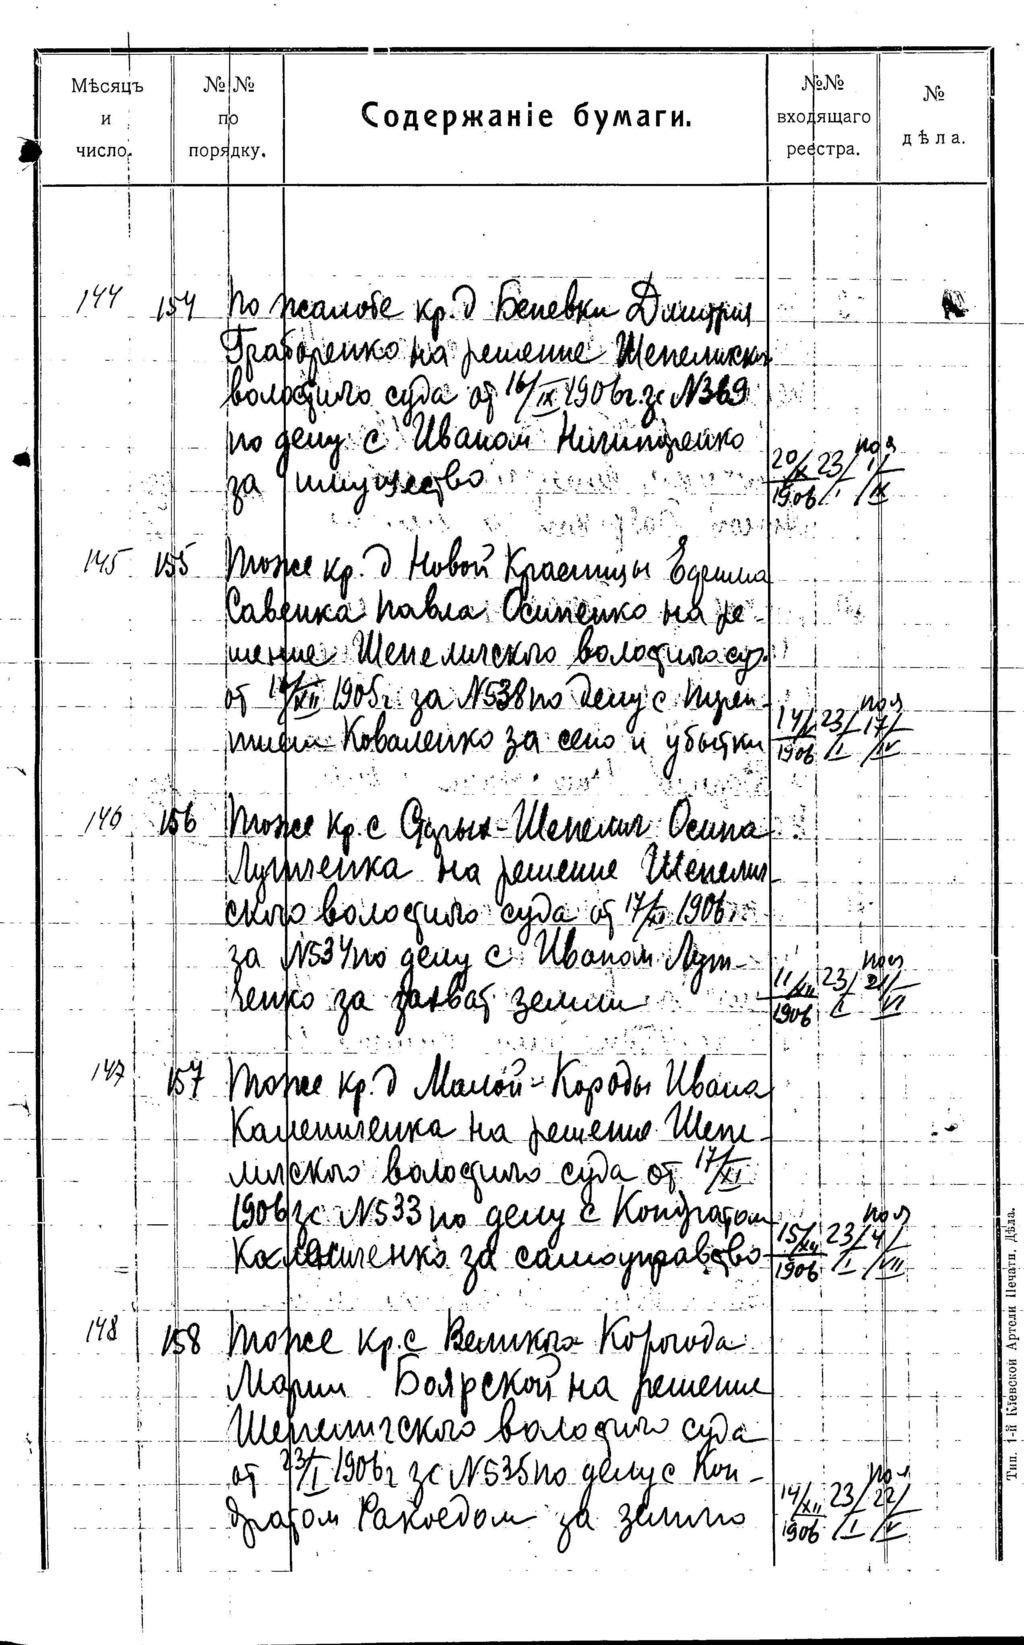 Мѣсяцъ и число.
№№ по порядку.
Содержаніе бумаги.
№№ входящаго реестра.
№ дѣла.
144 154 По жалобе кр. д Беневки Дмитрия
Грабаренко на решение Шепеличск
волостного суда от 16/IX 1906 г. за N369
по делу с Иваном Ничипоренко
за имущество
20/X 1906 23/I 1/IX
145 155 Тоже кр. д Новой Красницы Ефима
Савенка Павла Осипенко на ре-
шение Шепеличского волостного суд.
от /XII 1905 г за N538 по делу с
Коваленко за сено и убытки
14/ 1906 23/I 17/IV
146 156 Тоже кр. с Старых-Шепелич Осипа
Лутченка на решение Шепелич
ского волостного суда от 17/XI 1906 г.
за N534 по делу с Иваном Лут-
ченко за захват земли
11/XII 1906 23/I 21/VI
147 157 Тоже кр. д Малой-Короды Ивана
на решение Шепе-
личского волостного суда от 17/XI
1906 за N533 по делу с Кондратом
за самоуправство
15/XII 1906 23/I 4/VII
148 158 Тоже кр. с Великого Корогода
Марии Боярской на решение
Шепеличского волостного суда
от 23/I 1906 г за N535 по делу с Кон-
дратом Ракоедом за землю
14/XII 1906 23/I 22/V
Тип. 1-й Кіевской Артели Печатн. Дѣла.